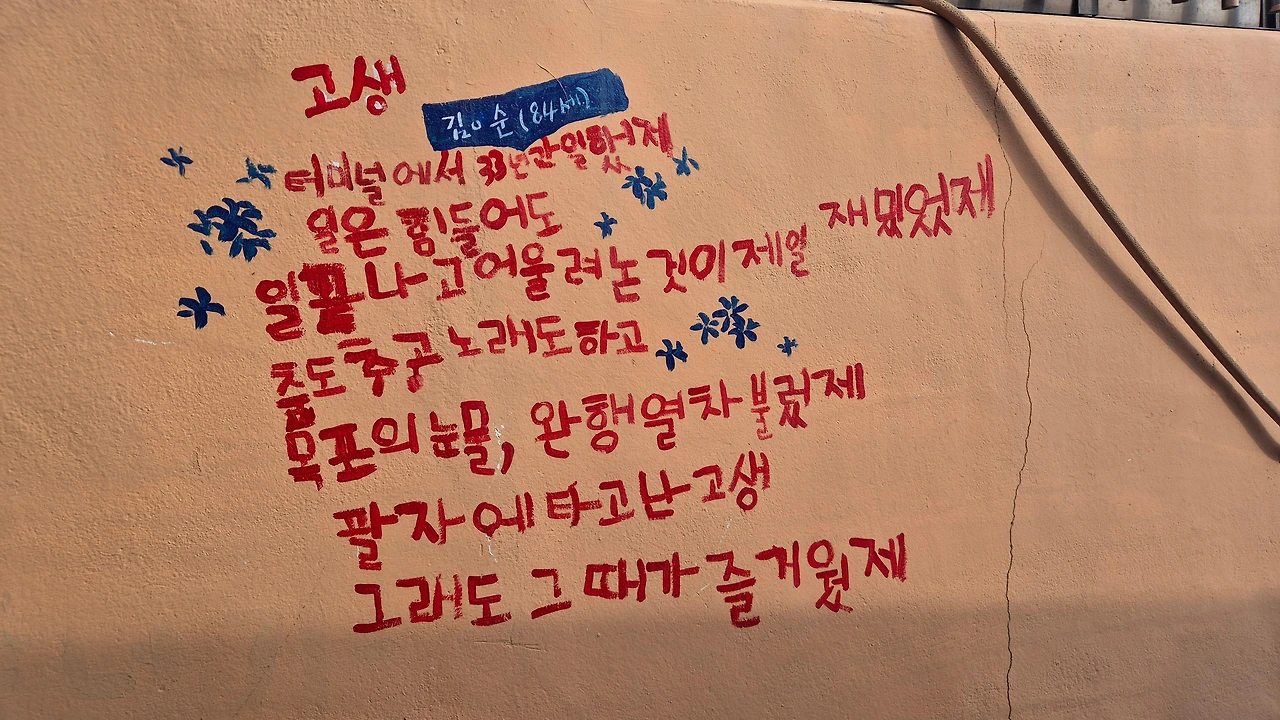 고생
김ㅇ순(84세)
터미널에서 33년간 일했제
일은 힘들어도
일끝나고 어울려 논 것이 제일 재밌었제
춤도 추고 노래도 하고
목포의 눈물, 완행열차 불렀제
팔자에 타고난 고생
그래도 그 때가 즐거웠제